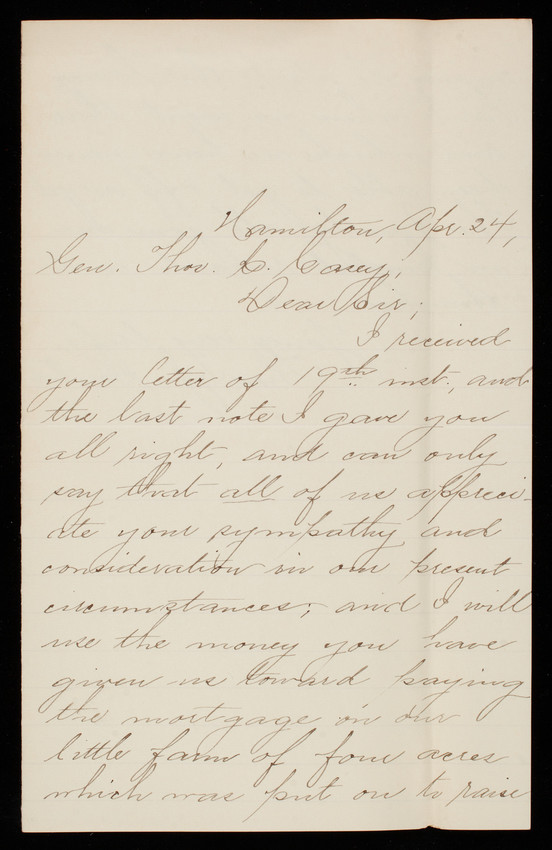 Hamilton, Apr. 24,
Gen. Thos. L. Casey,
Dear Sir;
I received
your letter of 19th inst., and
the last note I gave you
all right, and can only
say that all of us appreci-
ate your sympathy and
consideration in our present
circumstances; and I will
use the money you have
given us toward paying
the mortgage on our
little farm of four acres
which was put on to raise